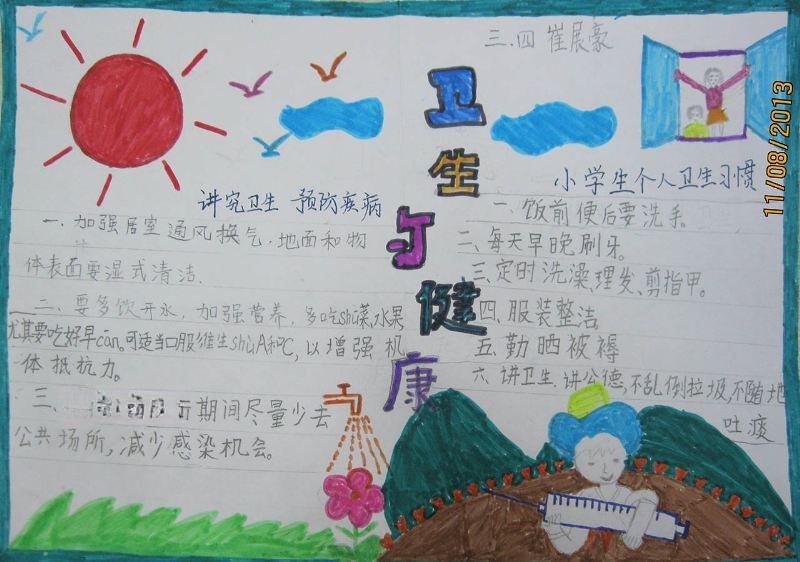 三.四 崔展豪
卫生与健康
讲究卫生 预防疾病
一.加强居室通风换气.地面和物
体表面要湿式清洁.
二、要多饮开水，加强营养，多吃shū菜,水果
尤其要吃好早cān。可适当口服维生shùA和C，以增强机
体抵抗力。
三、期间尽量少去
公共场所，减少感染机会。
小学生个人卫生习惯
一、饭前便后要洗手。
二、每天早晚刷牙。
三.定时洗澡、理发、剪指甲。
四、服装整洁
五、勤晒被褥
六、讲卫生.讲公德、不乱倒拉圾,不随地
吐痰
11/08/2013